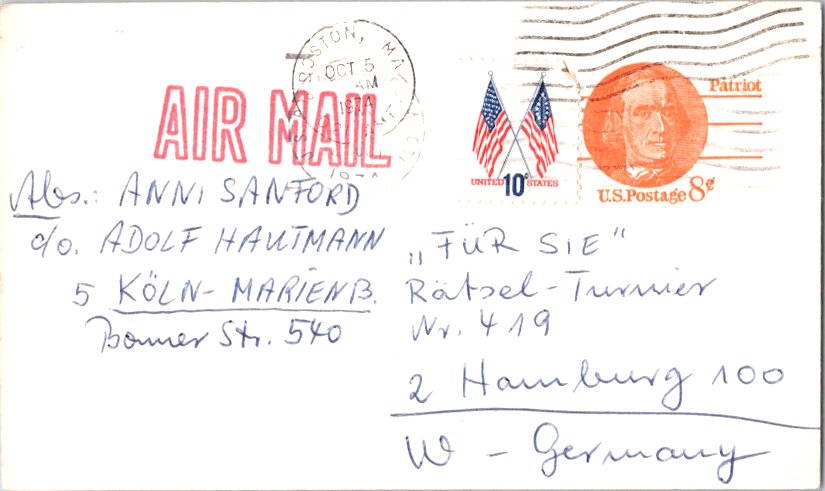 BOSTON, MA
OCT 5
AM
1974
AIR MAIL
UNITED 10¢ STATES
Patriot
U.S. Postage 8¢
Abs.: ANNI SANFORD
c/o. ADOLF HAUTMANN
5 KÖLN-MARIENB.
Bonner Str. 540
„FÜR SIE"
Rätsel-Turnier
Nr. 419
2 Hamburg 100
W - Germany